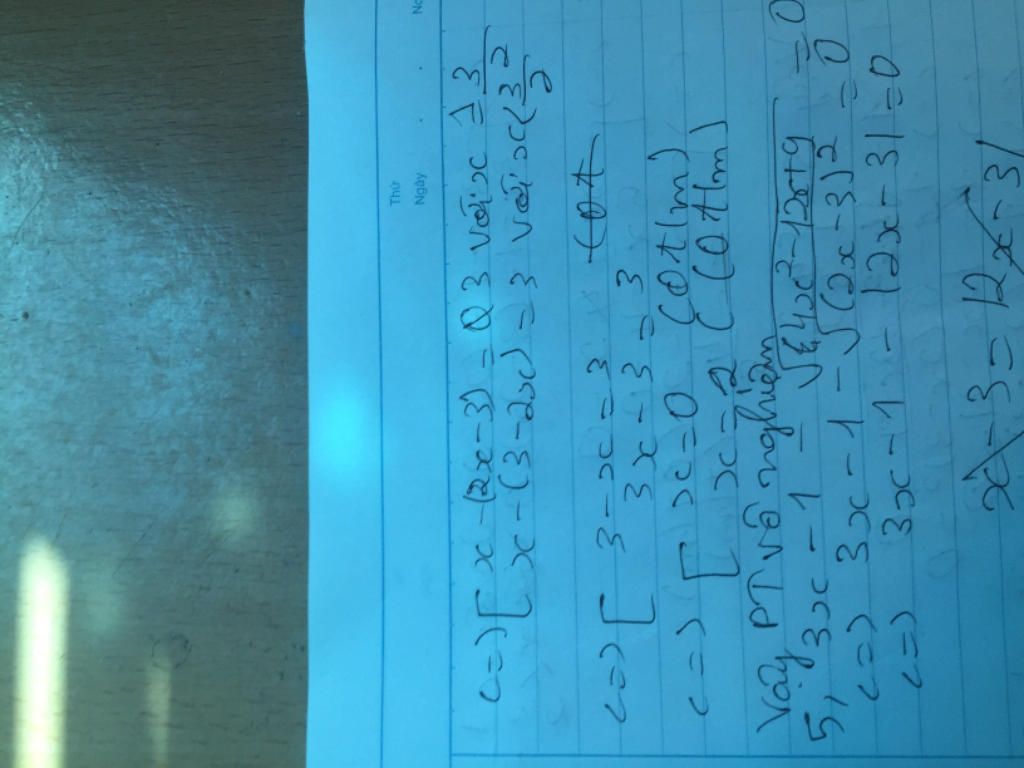 No
Thứ
Ngày
<=> [ x - (2x-3) = 0 3 với x ≥ 3/2
[ x - (3-2x) = 3 với x < 3/2
<=> [ 3 - x = 3 (0t
3x - 3 = 3
<=> [ x = 0 (0t|m)
x = 2 (0t|m)
Vậy PT vô nghiệm
5, 3x - 1 - √4x² - 12x + 9 = 0
<=> 3x - 1 - √(2x - 3)² = 0
<=> 3x - 1 - |2x - 3| = 0
x - 3 = |2x - 3|